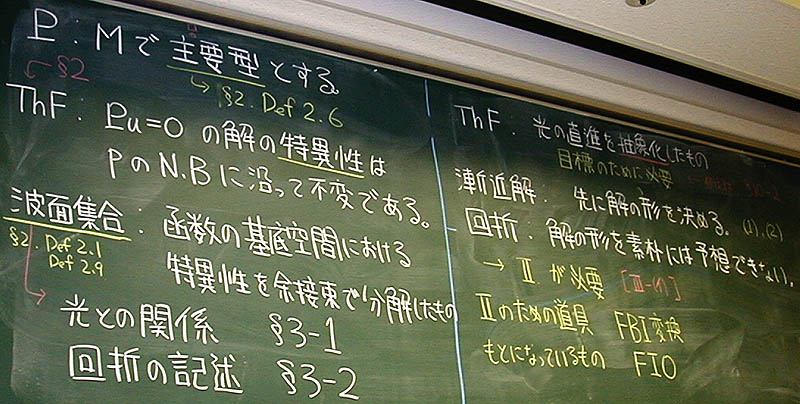 P : Mで主要型とする。
§2
§2. Def 2.6
Thm F. Pu=0 の解の特異性は
PのN.Bに沿って不変である。
波面集合: 函数の基底空間における
§2. Def 2.1
Def 2.9
特異性を余接束で分解したもの
光との関係 §3-1
回折の記述 §3-2
Thm F. 光の直進を抽象化したもの
目標のために必要
漸近解: 先に解の形を決める。(1),(2)
回折: 解の形を素朴には予想できない。
→ II. が必要 [III-(1)]
IIのための道具 FBI変換
もとになっているもの FIO